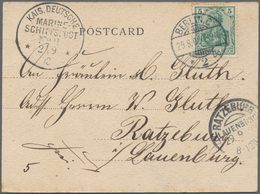 KAIS. DEUTSCHE
MARINE-
SCHIFFSPOST
27/9
POSTCARD
BERLIN
5 5
An Fräulein M. Gluth.
Auf Herrn W. Gluth
Ratzeburg
Lauenburg.
RATZEBURG
LAUENBURG
5